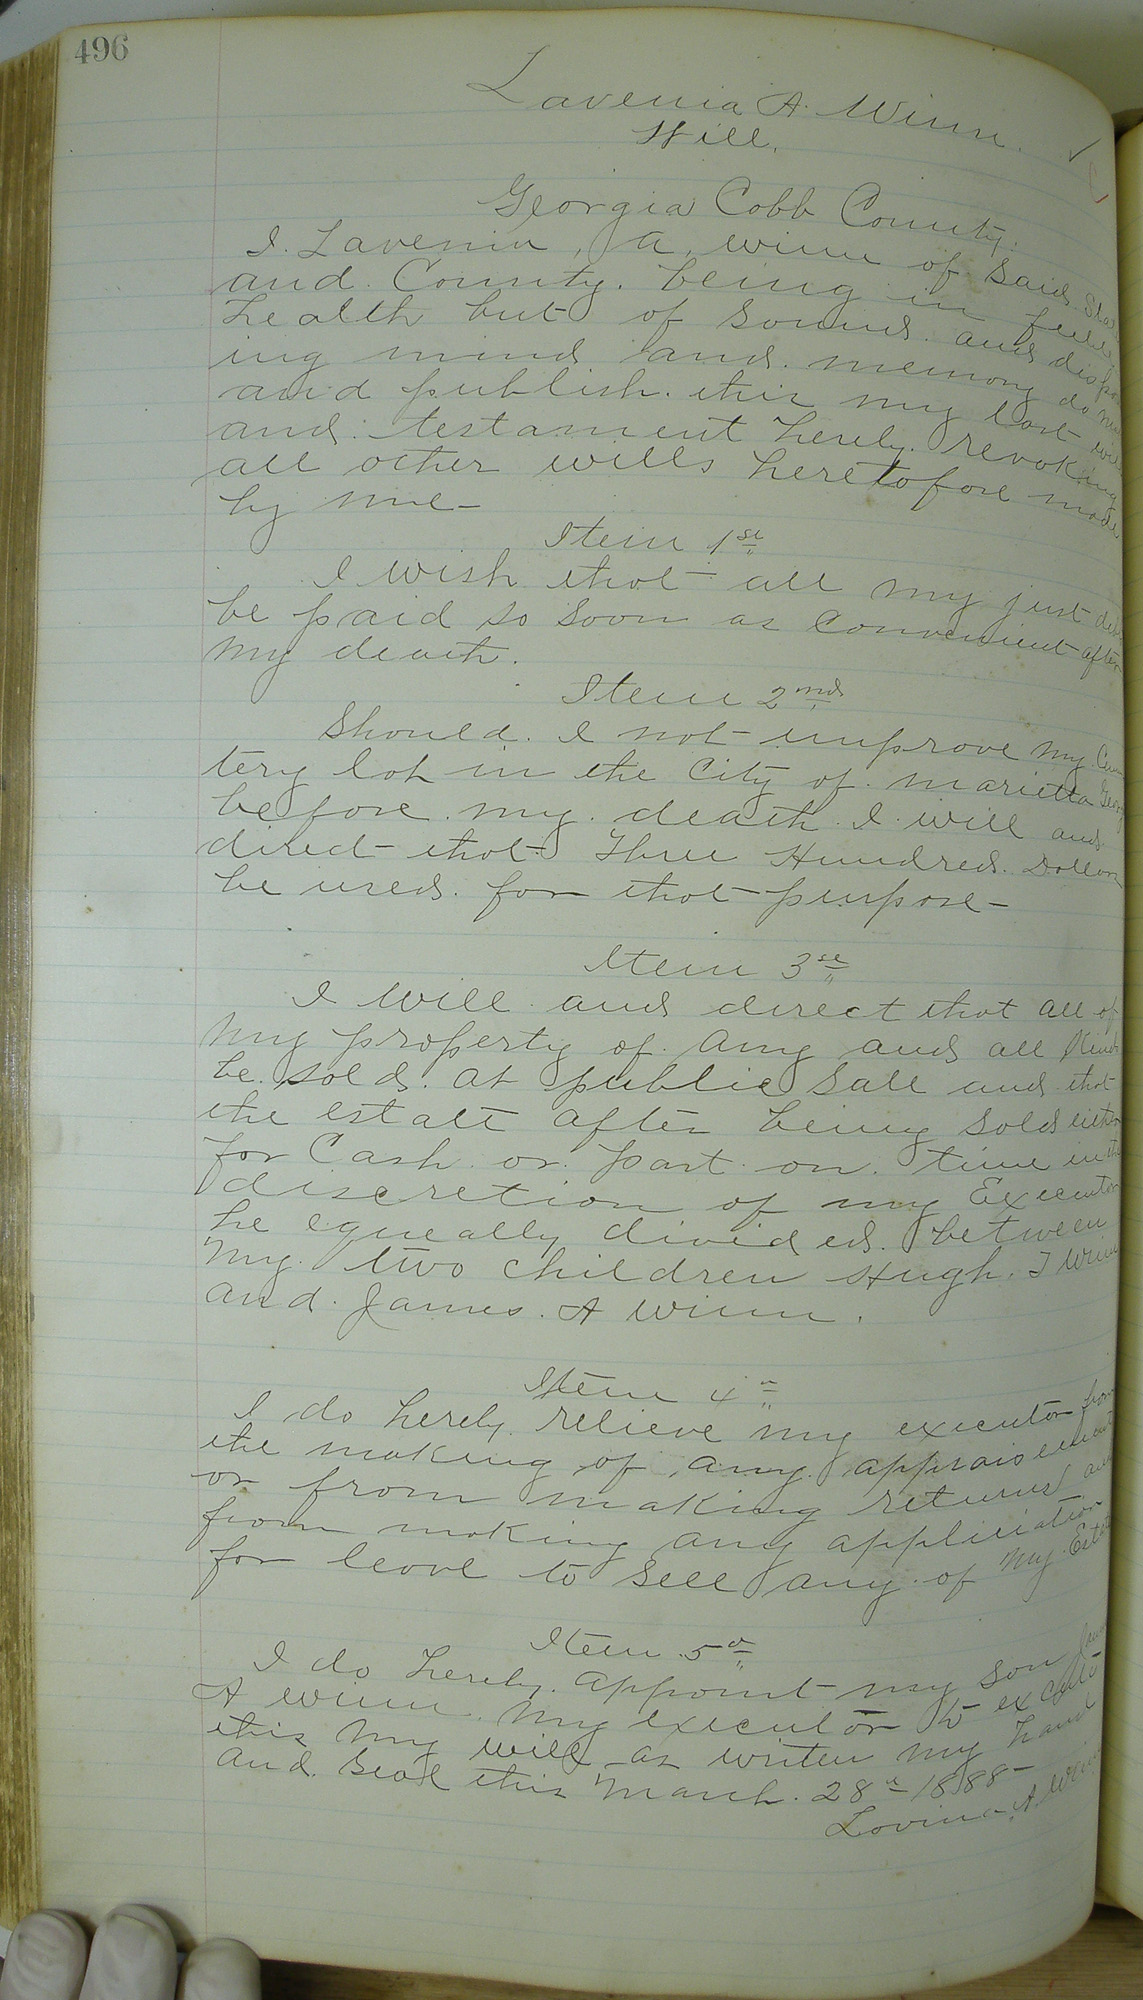 496
Lavenia A. Winn.
Will.
Georgia Cobb County.
I. Lavenia, A, winn of Said
and County. being in feeble
health but of Sound. and dispos
ing mind and. memory do
and publish. this my last will
and. testament hereby. revoking
all other wills heretofore made
by me-
Item 1st
I wish that all my just
be paid so soon as Convenient after
my death.
Item 2nd
Should. I not improve my Ceme
tery lot in the City of. Marietta
before my. death I. will and.
direct that Three Hundred. Dollars
be used. for that purpose-
Item 3rd
I will and direct that all of
my property of. any and all Kind
be. sold. at public Sale and that
the estate after being Sold either
for Cash. or. part. on. time in the
discretion of my Executor
be equally divided. between
my. two children Hugh. T Winn
and. James. A Winn.
Item 4th
I do hereby. relieve my executor from
the making of any. appraisement
or from making returns and
from making any application
for leave to Sell any. of my Estate
Item 5th
I do hereby. appoint my son
A winn. my executor to execute
this my will as writen my hand
and. Seal this March. 28th 1888-
Lovina. A. Winn